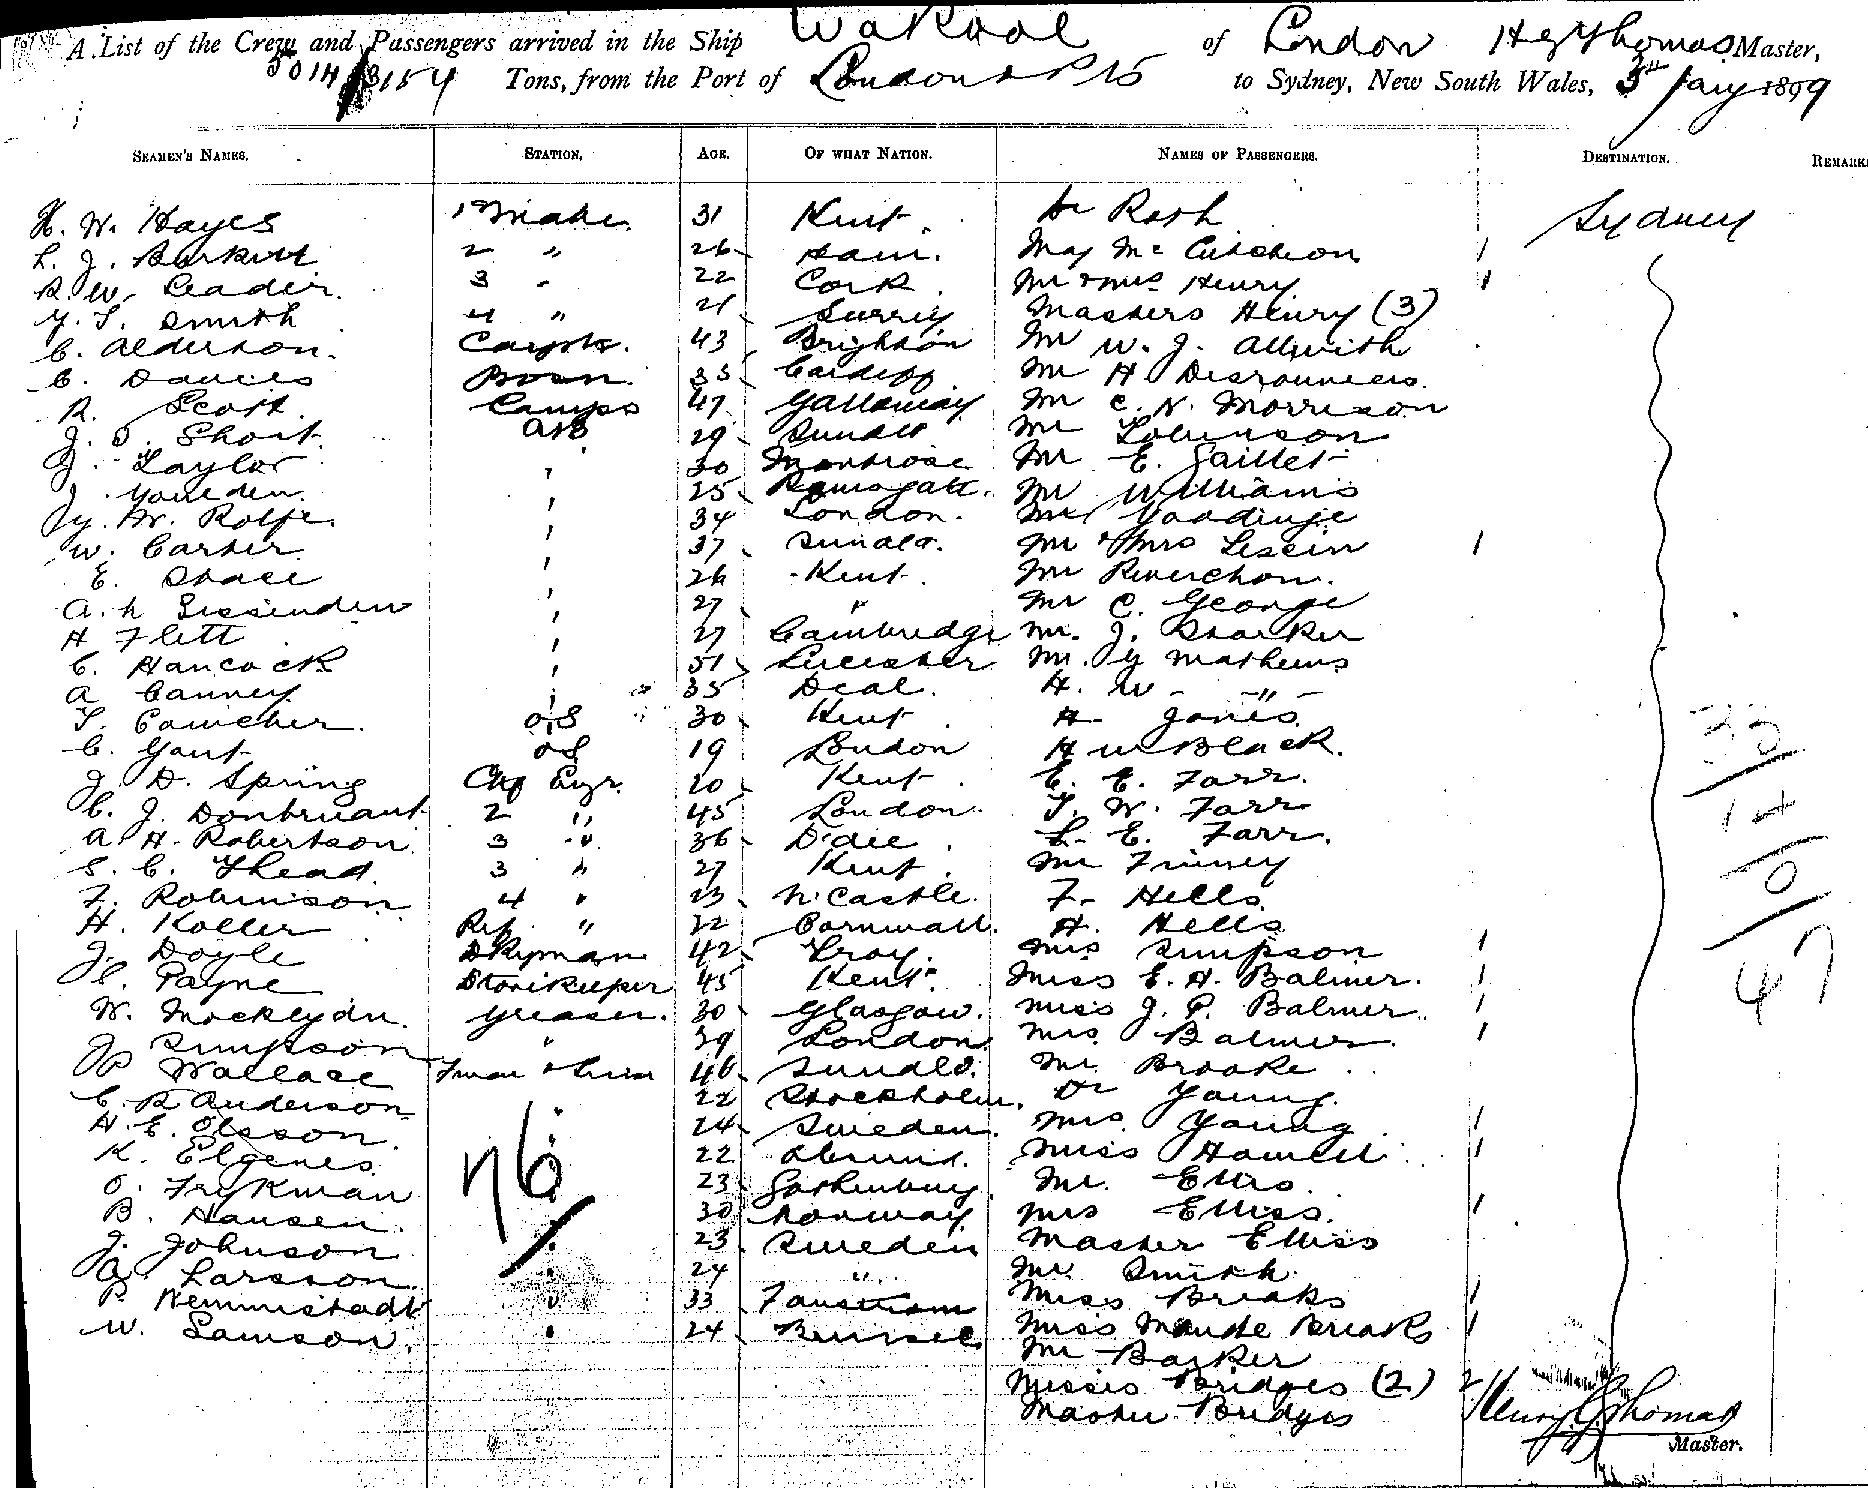 A List of the Crew and Passengers arrived in the Ship Wakool of London H G Thomas Master,
5014 / 3154 Tons, from the Port of London & Pts to Sydney, New South Wales, 5th Jany 1899
SEAMEN'S NAMES. STATION. AGE. OF WHAT NATION. NAMES OF PASSENGERS. DESTINATION. REMARK
H. W. Hayes 1st Mate 31 Kent Dr Rash Sydney
L. J. 2 " 26 Maj Mc Cutcheon
R. W. Leader 3 " 22 Cork Mr & Mrs Henry
Y. S. Smith 4 " 21 Surrey Masters Henry (3)
C. Alderton 43 Brighton Mr W. J. Allwith
C. Davies Bosn 35 Cardiff Mr H
R. Scott Lamps 47 Galloway Mr C. N. Morrison
J. S. Short AB 29 Sundld Mr Robinson
J. Taylor " 30 Montrose Mr E. Gaillet
J. " 25 Ramsgate Mr Williams
Y. W. Rolfe " 34 London Mr
W. Carter " 37 Sundld Mr & Mrs
E. Stace " 26 Kent Mr Reverchon
A. h Sissenden " 27 " Mr C. George
H Flett " 27 Cambridge Mr. J. Starker
C. Hancock " 51 Leicester Mr. Y Mathews
A Canney " 35 Deal H. W - " -
T. O.S 30 Kent A. Jones
C. Gant OS 19 London H W Black
J. D. Spring Chf Engr. 20 Kent E. E. Farr
C. J. 2 " 45 London T. W. Farr
A. H. Robertson 3 " 36 D'dee L. E. Farr
S. C. Thead 3 " 27 Kent Mr Finney
F. Robinson 4 " 23 N'Castle F. Hells
H. Koller Ref " 32 Cornwall A. Hells
J. Doyle Dkyman 42 Troy Mrs Simpson
C. Payne Storekeeper 45 Kent Miss E. A. Balmer
W. Greaser 30 Glasgow Miss J. P. Balmer
J Simpson " 39 London Mrs Balmer
P Wallace Fman & Trim 46 Sundld Mr Brooke
C. R Anderson " 22 Stockholm Dr Young
H. E. Olsson " 24 Sweden Mrs Young
K. Elgenes 22 Miss Howell
O. Frykman 23 Gothenburg Mr. Ellis
B. Hansen 30 Norway Mrs Elliss
J. Johnson 23 Sweden Master Elliss
A. Larsson 24 " Mr Smith
P. " 33 Miss Breaks
W. Samson " 24 Miss Maude Breaks
Mr Barker
Misses Bridges (2) 2
Master Bridges
76
32
14
0
47
Henry G Thomas
Master.